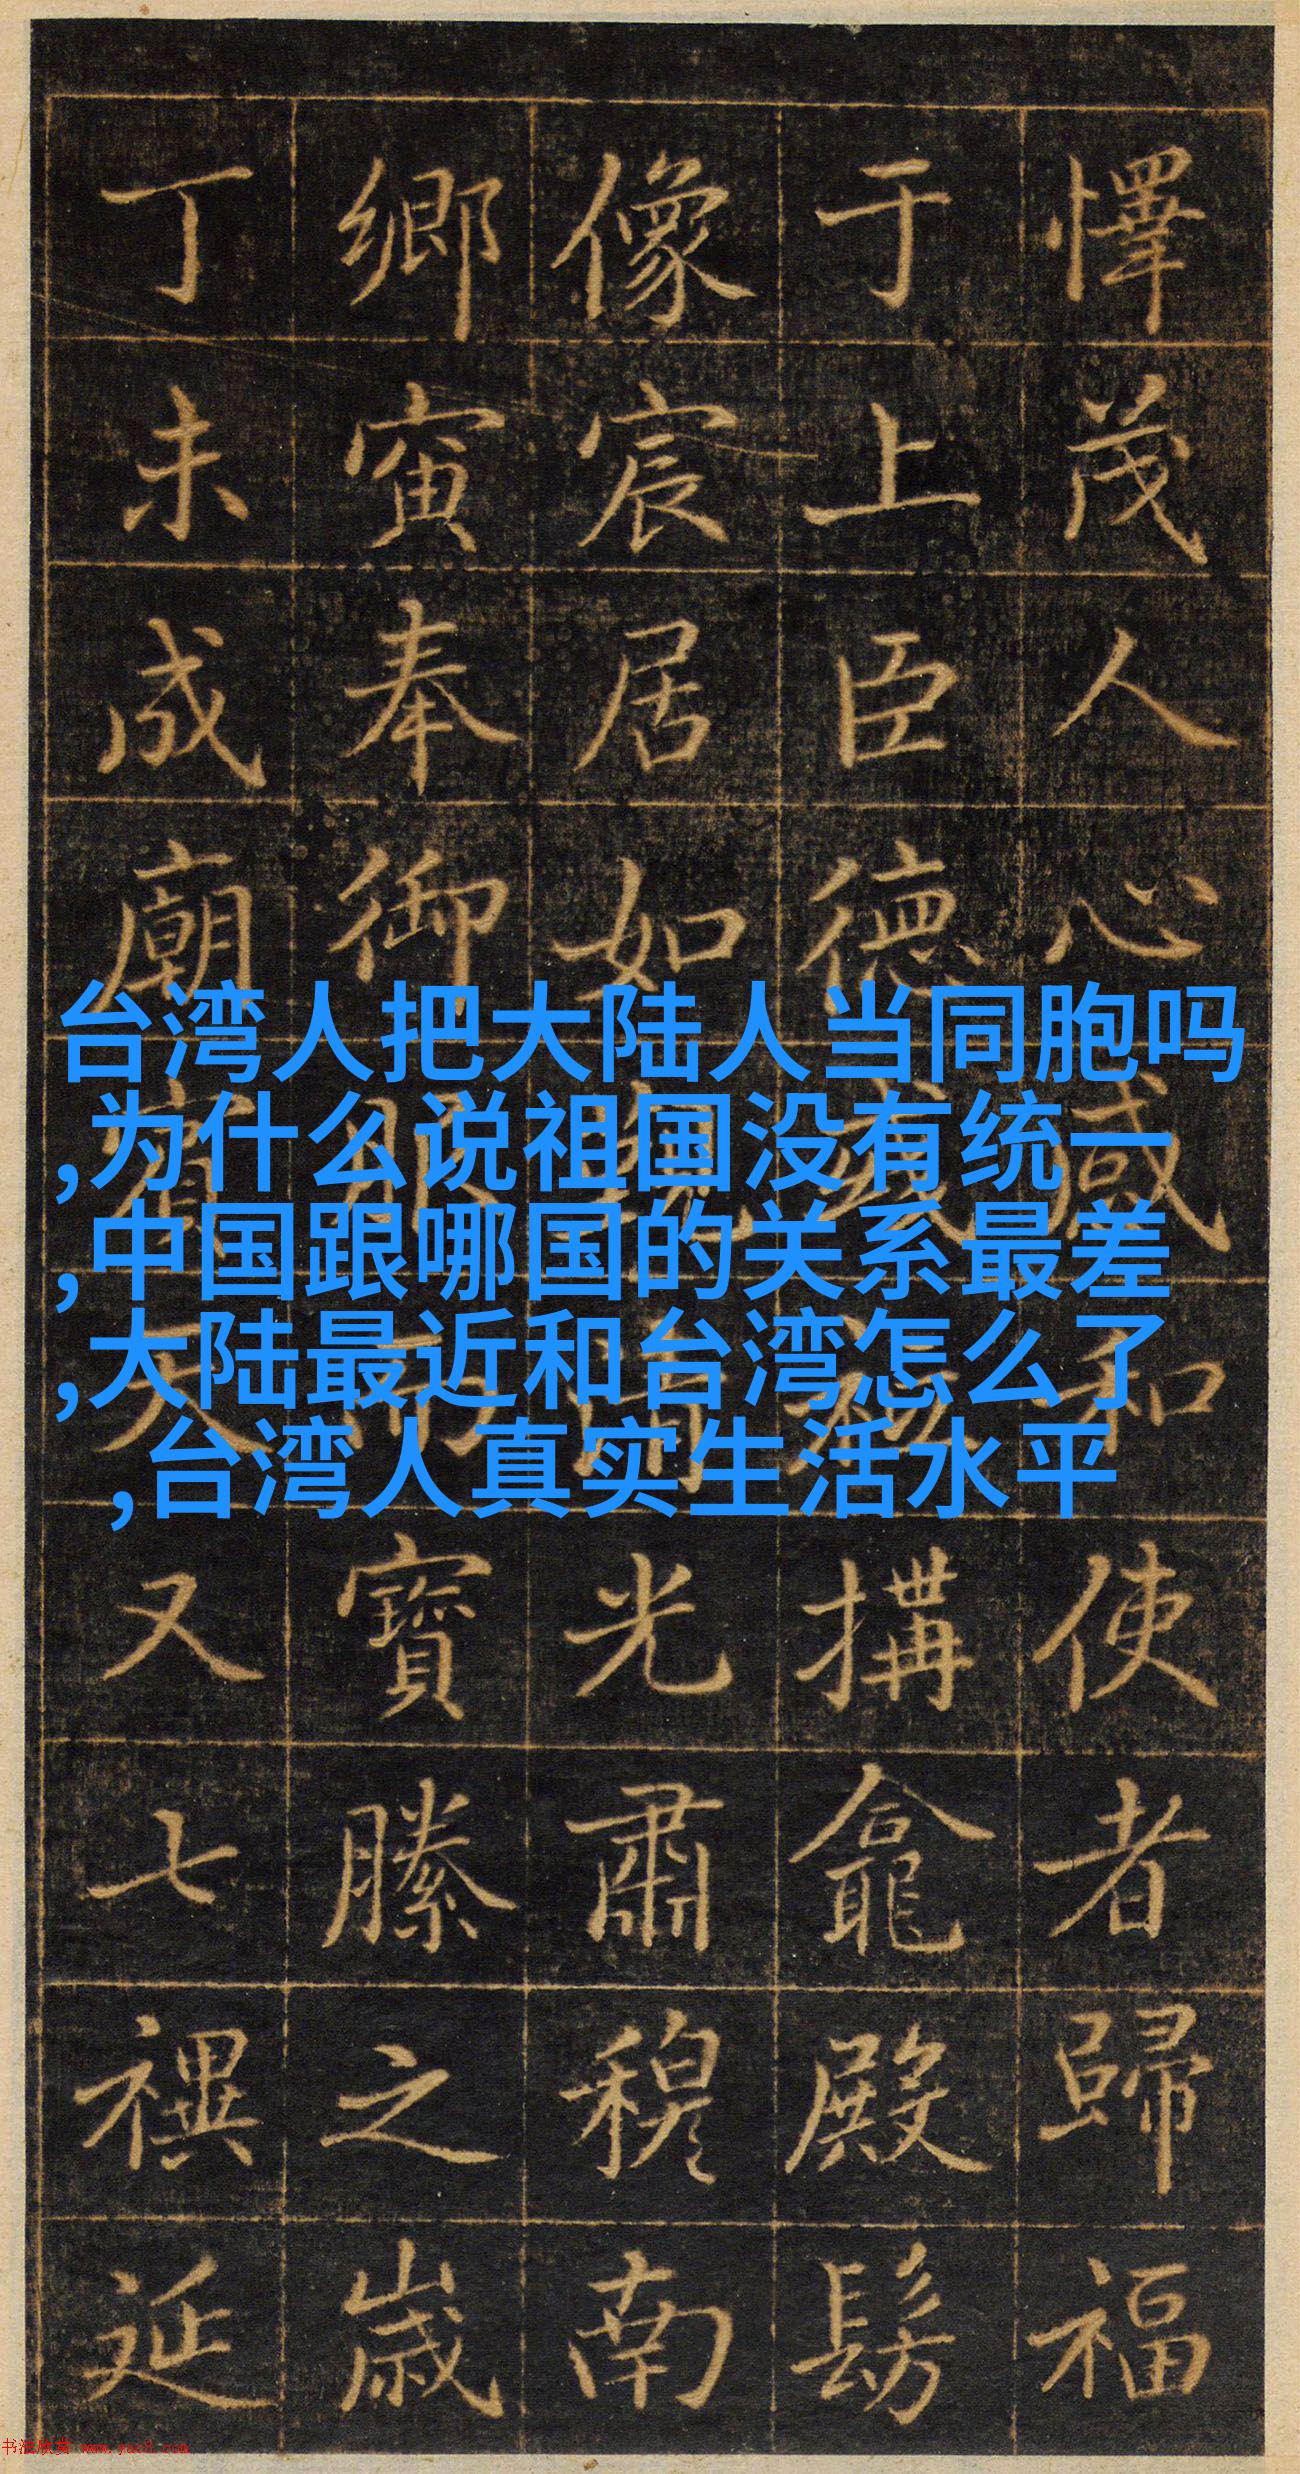 懌茂人心感和使者歸福
于上臣德搆龕殿髣
像宸居如光肅穆南
鄉寅奉御服而寶縢之歲
丁未成廟賓天又七禩延
台湾人把大陆人当同胞吗
,为什么说祖国没有统一
,中国跟哪国的关系最差
,大陆最近和台湾怎么了
,台湾人真实生活水平
书法欣赏 www.yac8.com